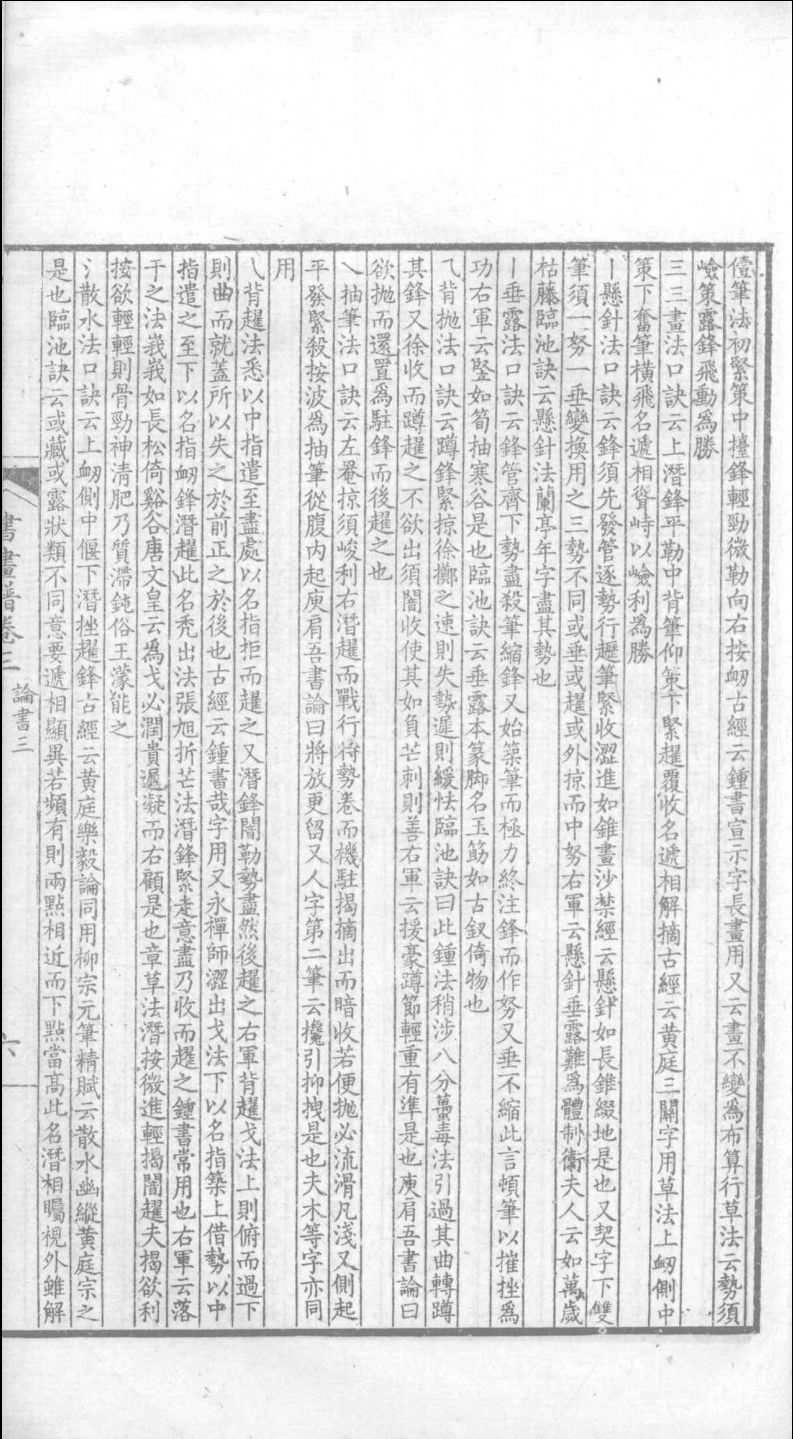 儓筆法初緊策中擡鋒輕勁微勒向右按衂古經云鍾書宣示字長畫用又云畫不變為布算行草法云勢須
嶮策露鋒飛動為勝
三三畫法口訣云上潛鋒平勒中背筆仰策下緊趯覆收名遞相解摘古經云黄庭三關字用草法上衂側中
策下奮筆橫飛名遞相聳峙以嶮利為勝
丨懸針法口訣云鋒須先發管逐勢行趯筆緊收澀進如錐畫沙禁經云懸針如長錐綴地是也又契字下雙
筆須一努一垂變換用之三勢不同或垂或趯或外掠而中努右軍云懸針垂露難為體制衞夫人云如萬歲
枯藤臨池訣云懸針法蘭亭年字盡其勢也
丨垂露法口訣云鋒管齊下勢盡殺筆縮鋒又始築筆而極力終注鋒而作努又垂不縮此言頓筆以摧挫為
功右軍云竪如筍抽寒谷是也臨池訣云垂露本篆脚名玉筯如古釵倚物也
⺄背抛法口訣云蹲鋒緊掠徐擲之速則失勢遲則緩怯臨池訣曰此鍾法稍涉八分蠆毒法引過其曲轉蹲
其鋒又徐收而蹲趯之不欲出須闇收使其如負芒刺則善右軍云援豪蹲節輕重有準是也庾肩吾書論曰
欲抛而還置為駐鋒而後趯之也
乀抽筆法口訣云左罨掠須峻利右潛趯而戰行待勢卷而機駐揭摘出而暗收若便抛必流滑凡淺又側起
平發緊殺按波為抽筆從腹内起庾肩吾書論曰將放更留又人字第二筆云攙引抑拽是也夫木等字亦同
用
㇂背趯法悉以中指遣至盡處以名指拒而趯之又潛鋒闇勒勢盡然後趯之右軍背趯戈法上則俯而過下
則曲而就蓋所以失之於前正之於後也古經云鍾書哉字用又永禪師澀出戈法下以名指築上借勢以中
指遣之至下以名指衂鋒潛趯此名禿出法張旭折芒法潛鋒緊走意盡乃收而趯之鍾書常用也右軍云落
于之法峩峩如長松倚谿谷唐文皇云為戈必潤貴遲疑而右顧是也章草法潛按微進輕揭闇趯夫揭欲利
按欲輕輕則骨勁神清肥乃質滯鈍俗王濛能之
氵散水法口訣云上衂側中偃下潛挫趯鋒古經云黄庭樂毅論同用柳宗元筆精賦云散水幽縱黄庭宗之
是也臨池訣云或藏或露狀類不同意要遞相顯異若頻有則兩點相近而下㸃當髙此名潛相矚視外雖解
書畫譜卷三 論書三
六